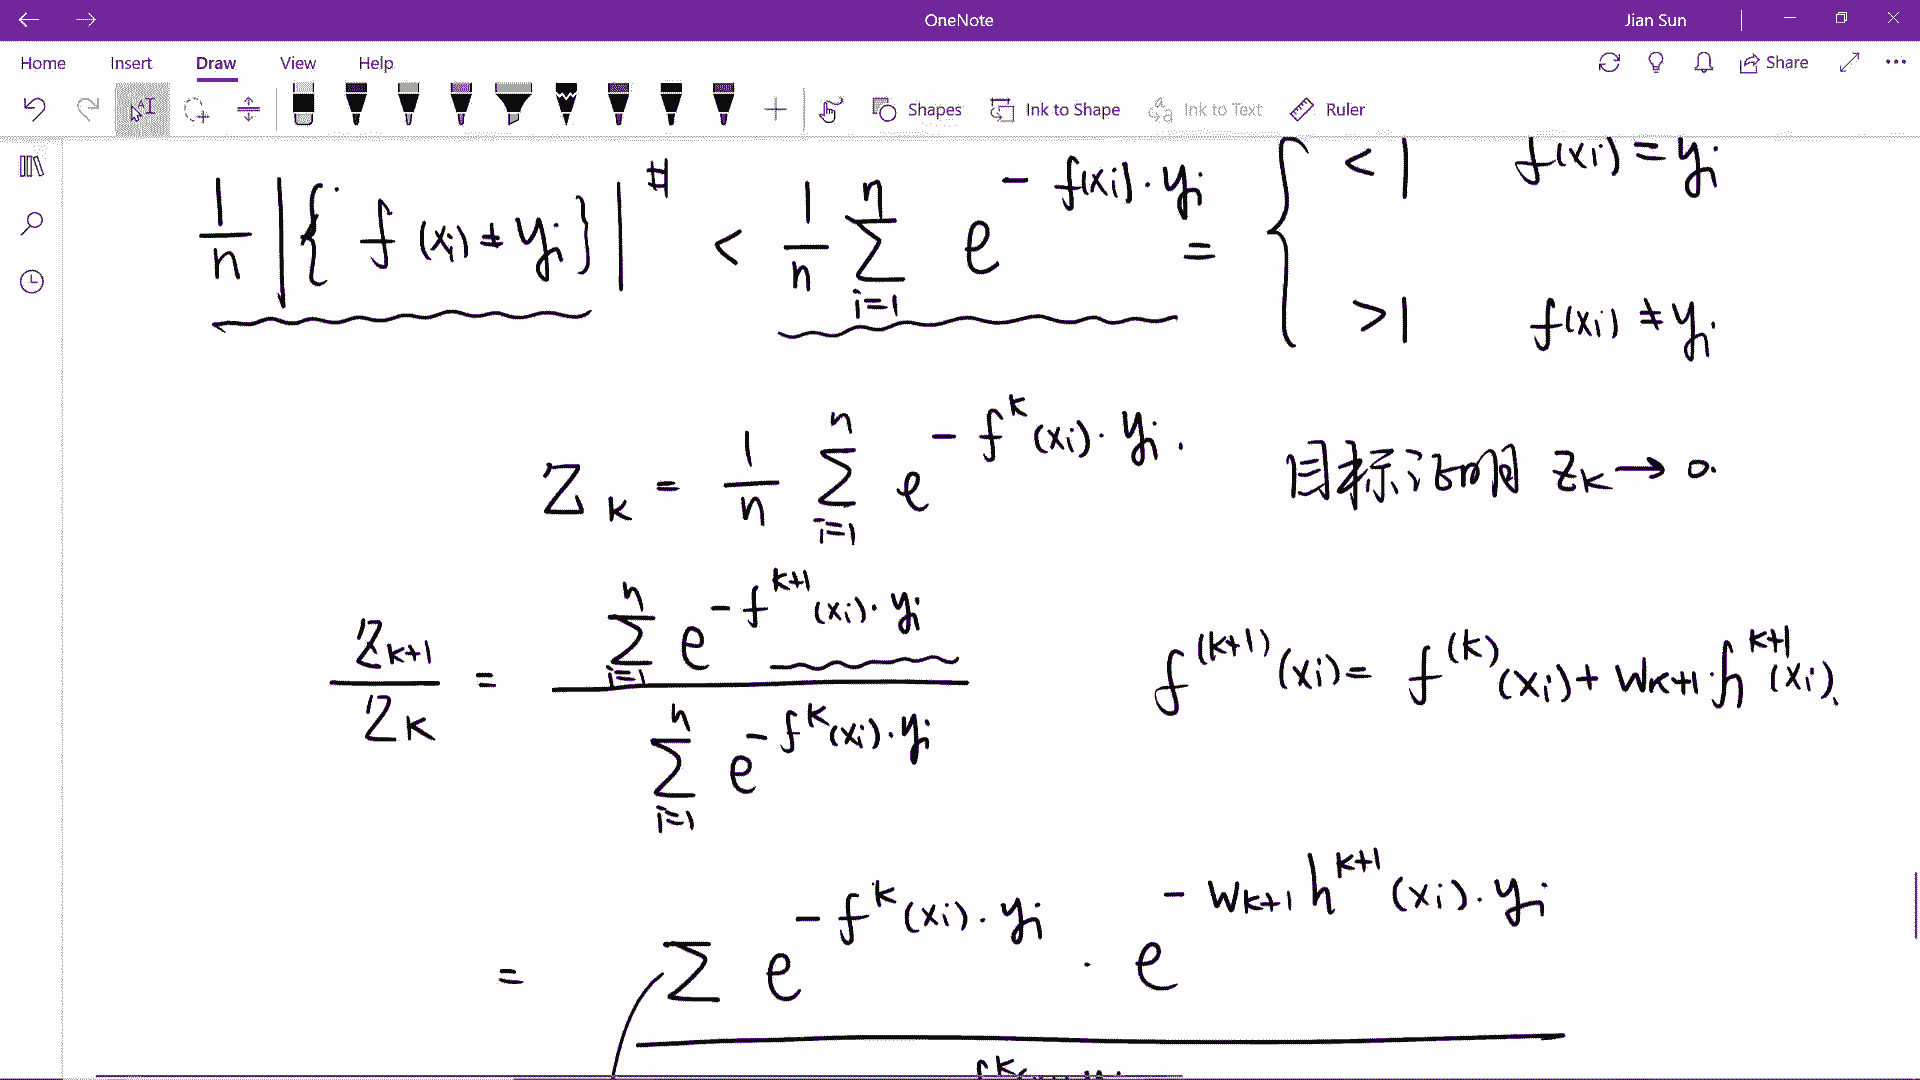 OneNote
Jian Sun
Home Insert Draw View Help Share
Shapes Ink to Shape Ink to Text Ruler
1/n |{ f(xi) ≠ yi }|^# < 1/n Σ_{i=1}^{n} e^{-f(xi)·yi} = { < 1 f(xi) = yi
> 1 f(xi) ≠ yi
Z_k = 1/n Σ_{i=1}^{n} e^{-f^k(xi)·yi}. 目标证明 Z_k → 0.
Z_{k+1}/Z_k = Σ_{i=1}^{n} e^{-f^{k+1}(xi)·yi} / Σ_{i=1}^{n} e^{-f^k(xi)·yi} f^{(k+1)}(xi) = f^{(k)}(xi) + w_{k+1}·h^{k+1}(xi).
= Σ e^{-f^k(xi)·yi} · e^{-w_{k+1} h^{k+1}(xi)·yi}